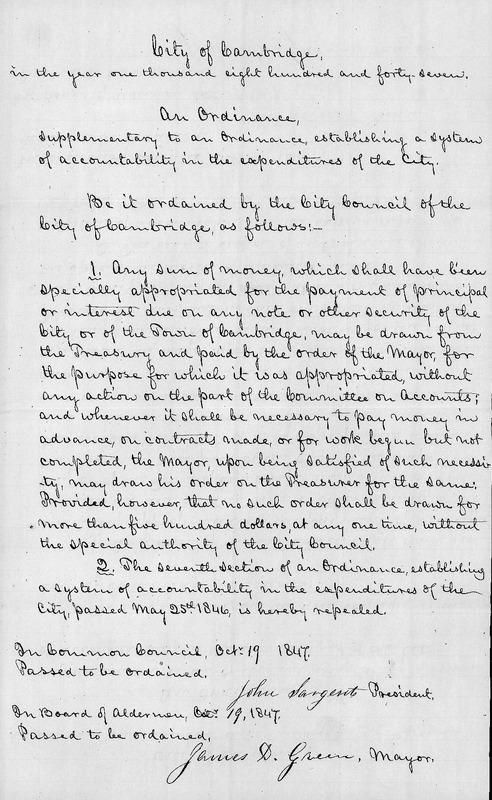 City of Cambridge,
in the year one thousand eight hundred and forty-seven.
An Ordinance,
supplementary to an Ordinance, establishing a system
of accountability in the expenditures of the City.
Be it ordained by the City Council of the
City of Cambridge, as follows:—
1. Any sum of money, which shall have been
specially appropriated for the payment of principal
or interest due on any note or other security of the
City or of the Town of Cambridge, may be drawn from
the Treasury and paid by the order of the Mayor, for
the purpose for which it was appropriated, without
any action on the part of the Committee on Accounts;
and whenever it shall be necessary to pay money in
advance, on contracts made, or for work begun but not
completed, the Mayor, upon being satisfied of such necessi-
ty, may draw his order on the Treasurer for the same:
Provided, however, that no such order shall be drawn for
more than five hundred dollars, at any one time, without
the special authority of the City Council.
2. The seventh section of an Ordinance, establishing
a system of accountability in the expenditures of the
City, passed May 25th 1846, is hereby repealed.
In Common Council, Oct. 19 1847.
Passed to be ordained.
John Sargent President.
In Board of Aldermen, Oct. 19, 1847.
Passed to be ordained,
James D. Green, Mayor.